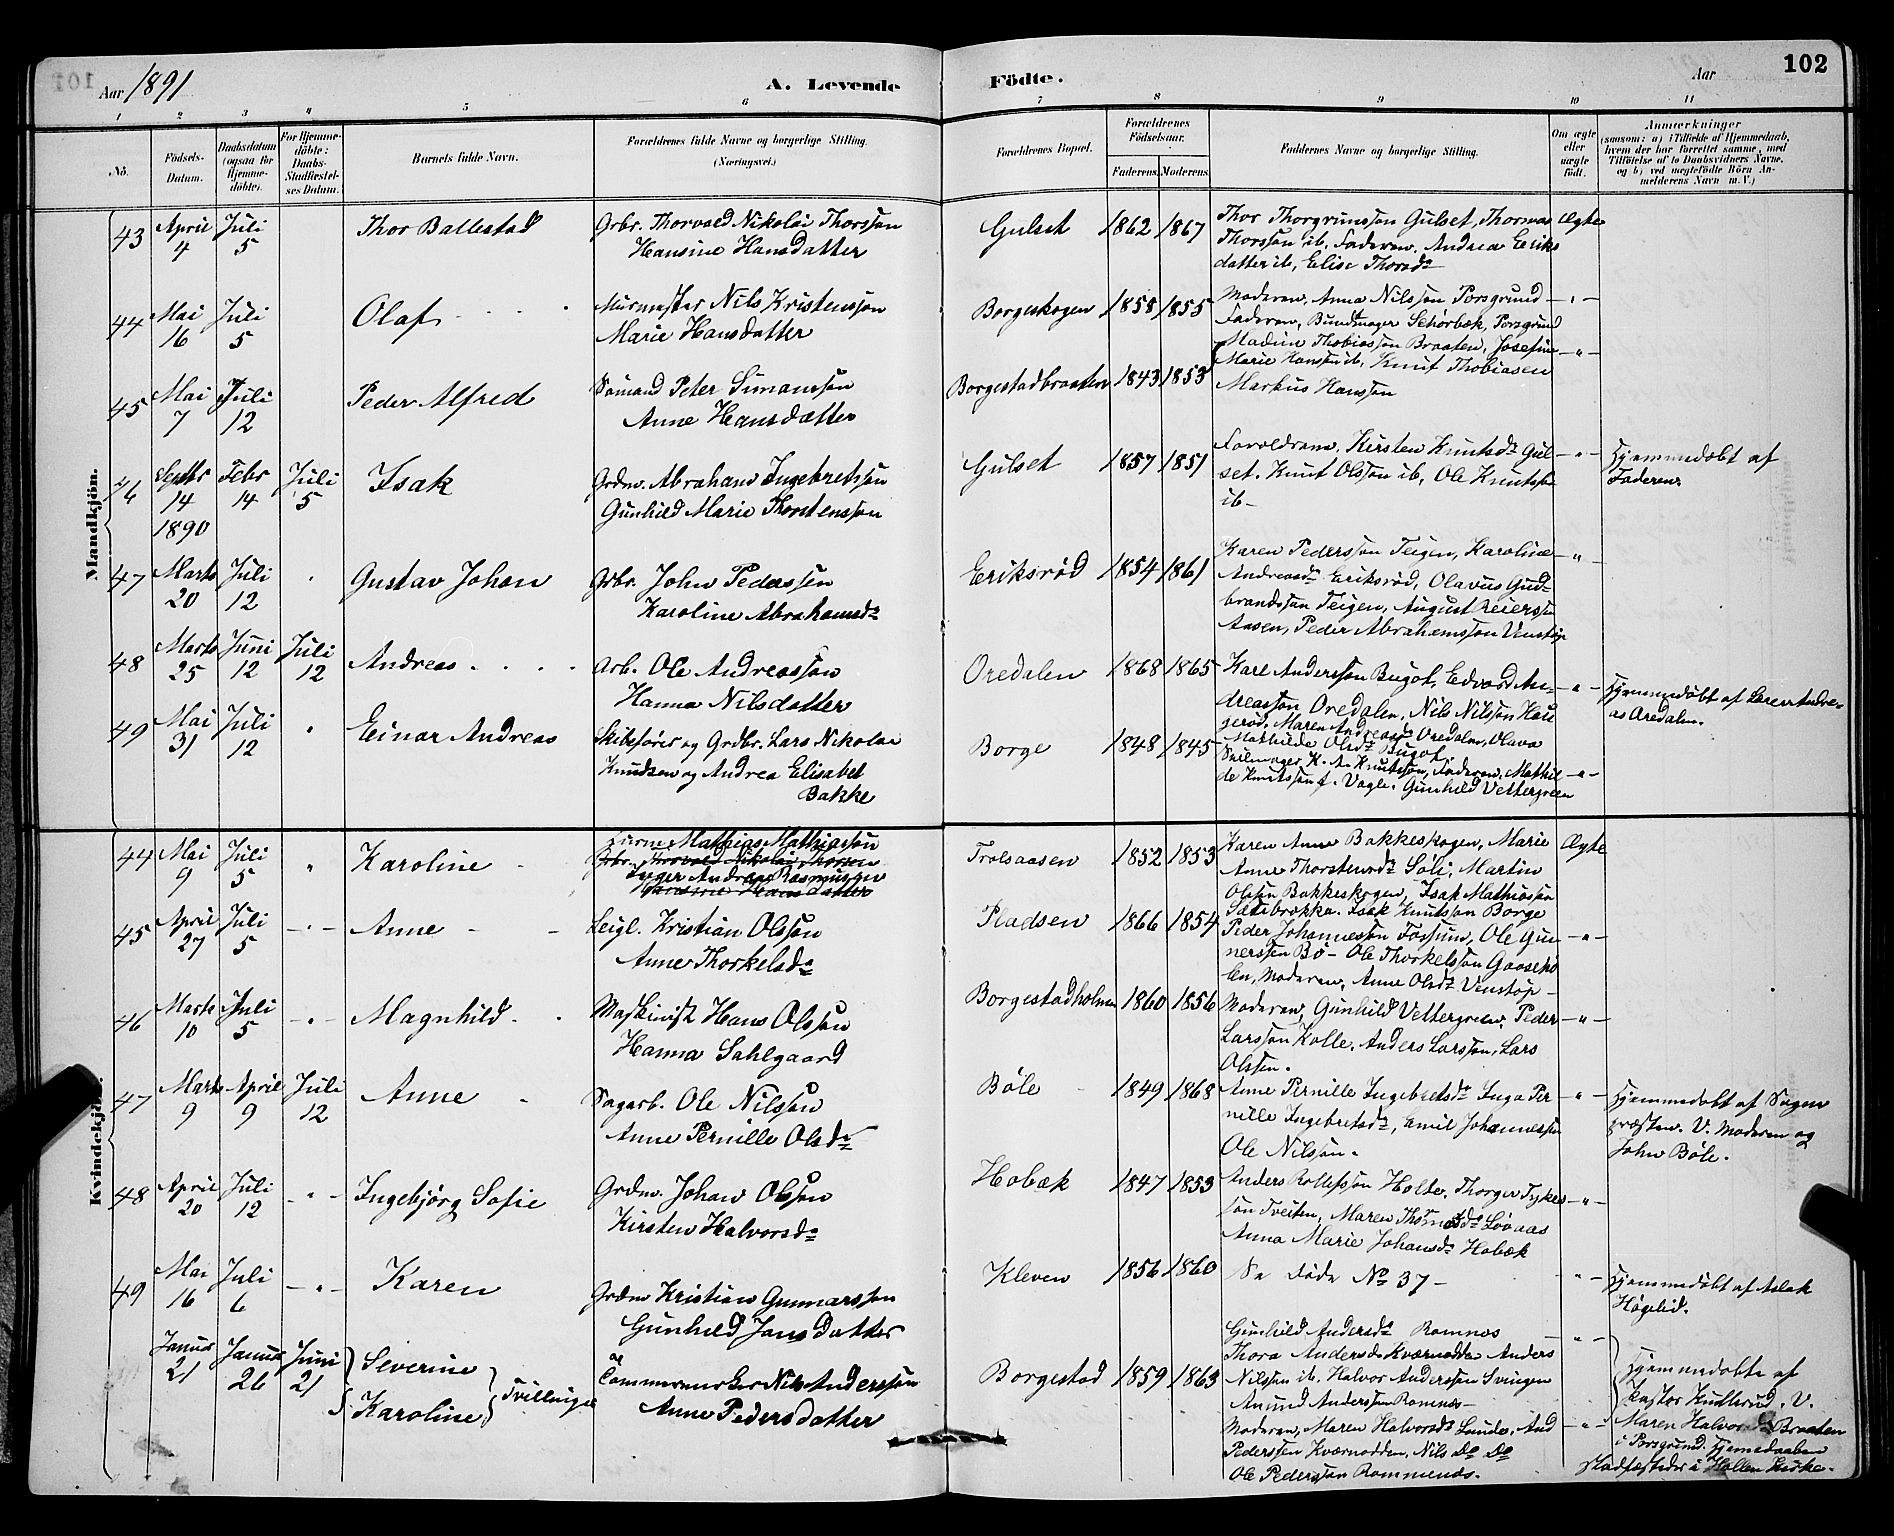 102
Aar 1891
A. Levende Födte.
Aar
1 2 3 4 5 6 7 8 9 10 11
No.
Födsels-Datum.
Daabsdatum (ogsaa for Hjemme-döbte).
For Hjemme-döbte: Daabs-Stadfæstel-ses Datum.
Barnets fulde Navn.
Forældrenes fulde Navne og borgerlige Stilling. (Næringsvei.)
Forældrenes Bopæl.
Forældrenes Födselsaar.
Faderens. Moderens.
Faddernes Navne og borgerlige Stilling.
Om ægte eller uægte födt.
Anmærkninger
(saasom: a) i Tilfælde af Hjemmedaab, hvem der har forrettet samme, med Tilföielse af to Daabsvidners Navne, og b) ved uægtefödte Börn An-melderens Navn m. V.)
Mandkjön.
43 April 4 Juli 5 Thor Ballestad Grbr. Thorvald Nikolai Thorsson
Hansine Hansdatter
Gulset 1862 1867 Thor Thorgrimsson Gulset, Thomas Ægte
Thorsson ib, Faderen, Andrea Eriks
datter ib, Elise Thorsdr
44 Mai 16 Juli 5 Olaf Murmester Nils Kristensson
Marie Hansdatter
Borgeskogen 1858 1855 Moderen, Anna Nilsson Porsgrund
Faderen, Bundtmager Schørbæk, Porsgrund
45 Mai 7 Juli 12 Peder Alfred Sømand Peter Simonssøn
Anne Hansdatter
Borgestadbraaten 1843 1853 Thobiasson Braaten, Josefine
Marie Hansen ib, Knut Thobiasen
Markus Hanssøn
46 Septbr 14 1890 Febr 14 Juli 5 Isak Grdm. Abraham Ingebretssøn
Gunhild Marie Thorstenssøn
Gulset 1857 1851 Forældrene, Kirsten Knutsdr Gul
set. Knut Olsson ib, Ole Knutssøn
ib
Hjemmedøbt af
Faderen
47 Marts 20 Juli 12 Gustav Johan Grbr. John Pederssøn
Karoline Abrahamsdr
Eriksrød 1854 1861 Karen Pedersson Teigen, Karoline
Andreasdr Eriksrød, Olavus Gud-
brandsson Teigen, August Reierssøn
Aasen, Peder Abrahamsson Venstøp
48 Marts 25 Juni 12 Juli 12 Andreas Arb. Ole Andreassøn
Hanna Nilsdatter
Oredalen 1868 1865 Karl Anderssøn Bugot, Edvard An-
dreassøn Oredalen, Nils Nilssøn
Maren Andreasdr Oredalen, Olava
Mathilde Olsdr Bugot
Hjemmedøbt af Søren Andre-
as Oredalen.
49 Mai 31 Juli 12 Einar Andreas Skibsfører og Grdbr. Lars Nikolai
Knudsen og Andrea Elisabet
Bakke
Borge 1848 1845 Seilmager K. A. Knutssøn, Faderen, Mathil-
de Knutssøn f. Vagle. Gunhild Vettergreen
Kvindekjön.
44 Mai 9 Juli 5 Karoline Mathias Mathiassøn
Grbr. Thorvald Nikolai Thorsen
Inger Andrea Rasmussen
Hansine Hansdatter
Trolsaasen 1852 1853 Karen Anne Bakkeskogen, Marie Ægte
Anne Thorstensdr Søli, Martin
Olssøn Bakkeskogen, Isak Mathiassøn
Sætebrækka. Isak Knutsson Borge
45 April 27 Juli 5 Anne Leigl. Kristian Olssøn
Anne Thorkelsdr
Pladsen 1866 1854 Peder Johannessøn Fossum, Ole Gun
nerssøn Bø - Ole Thorkelsson Gaasehø
len, Moderen, Anne Olsdr Venstøp
46 Marts 10 Juli 5 Magnhild Maskinist Hans Olssøn
Hanna Sahlgaard
Borgestadholmen 1860 1856 Moderen, Gunhild Vettergreen, Peder
Larssøn Kolle, Anders Larssøn, Lars
Olssen.
47 Marts 9 April 9 Juli 12 Anne Sagarb. Ole Nilssøn
Anne Pernille Olsdr
Bøle 1849 1868 Anne Pernille Ingebretsdr Inga Per
nille Ingebretsdr, Emil Johannessen
Ole Nilssøn.
Hjemmedøbt af Sogne
præsten. V. Moderen og
John Bøle.
48 April 20 Juli 12 Ingebjørg Sofie Grdm. Johan Olssøn
Kirsten Halvorsdr
Hobæk 1847 1853 Anders Rollefssøn Holte, Thorger Tykes
søn Tveiten, Maren Thomasdr Løvaas
Anna Marie Johansdr Hobæk
49 Mai 16 Juli 6 Karen Grdm Kristian Gunnarssøn
Gunhild Jansdatter
Kleven 1856 1860 Se Døde No 37
Hjemmedøbt af Aslak
Høgelid.
Januar 21 Januar 26 Juni 21 Severine
Karoline
Tvillinger
Tømmermerker Nils Anderssøn
Anne Pedersdatter
Borgestad 1859 1863 Gunhild Andersdr Romnes
Thora Andersdr Kværnodden Anders
Nilssen ib. Halvor Anderssen Svingen
Amund Anderssen Romnes
Moderen, Maren Halvorsdr Lunde, And
Pederssen Kværnodden, Nils Do Do
Ole Pederssøn Rommenes.
Hjemmedøbte af
Pastor V.
Maren Halvorsdr Braaten
i Porsgrund. Hjemmedaaben
stadfæstedes i Hollen Kirke.